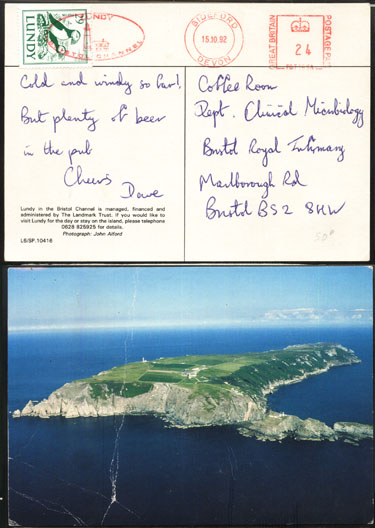 LUNDY
BRISTOL CHANNEL
LUNDY
BIDEFORD
15.10.92
DEVON
GREAT BRITAIN
24
POSTAGE PAID
Cold and windy so far!
But plenty of beer
in the pub
Cheers
Dave
Coffee Room
Dept. Clinical Microbiology
Bristol Royal Infirmary
Marlborough Rd
Bristol BS2 8HW
Lundy in the Bristol Channel is managed, financed and
administered by The Landmark Trust. If you would like to
visit Lundy for the day or stay on the island, please telephone
0628 825925 for details.
Photograph: John Alford
L6/SP.10416